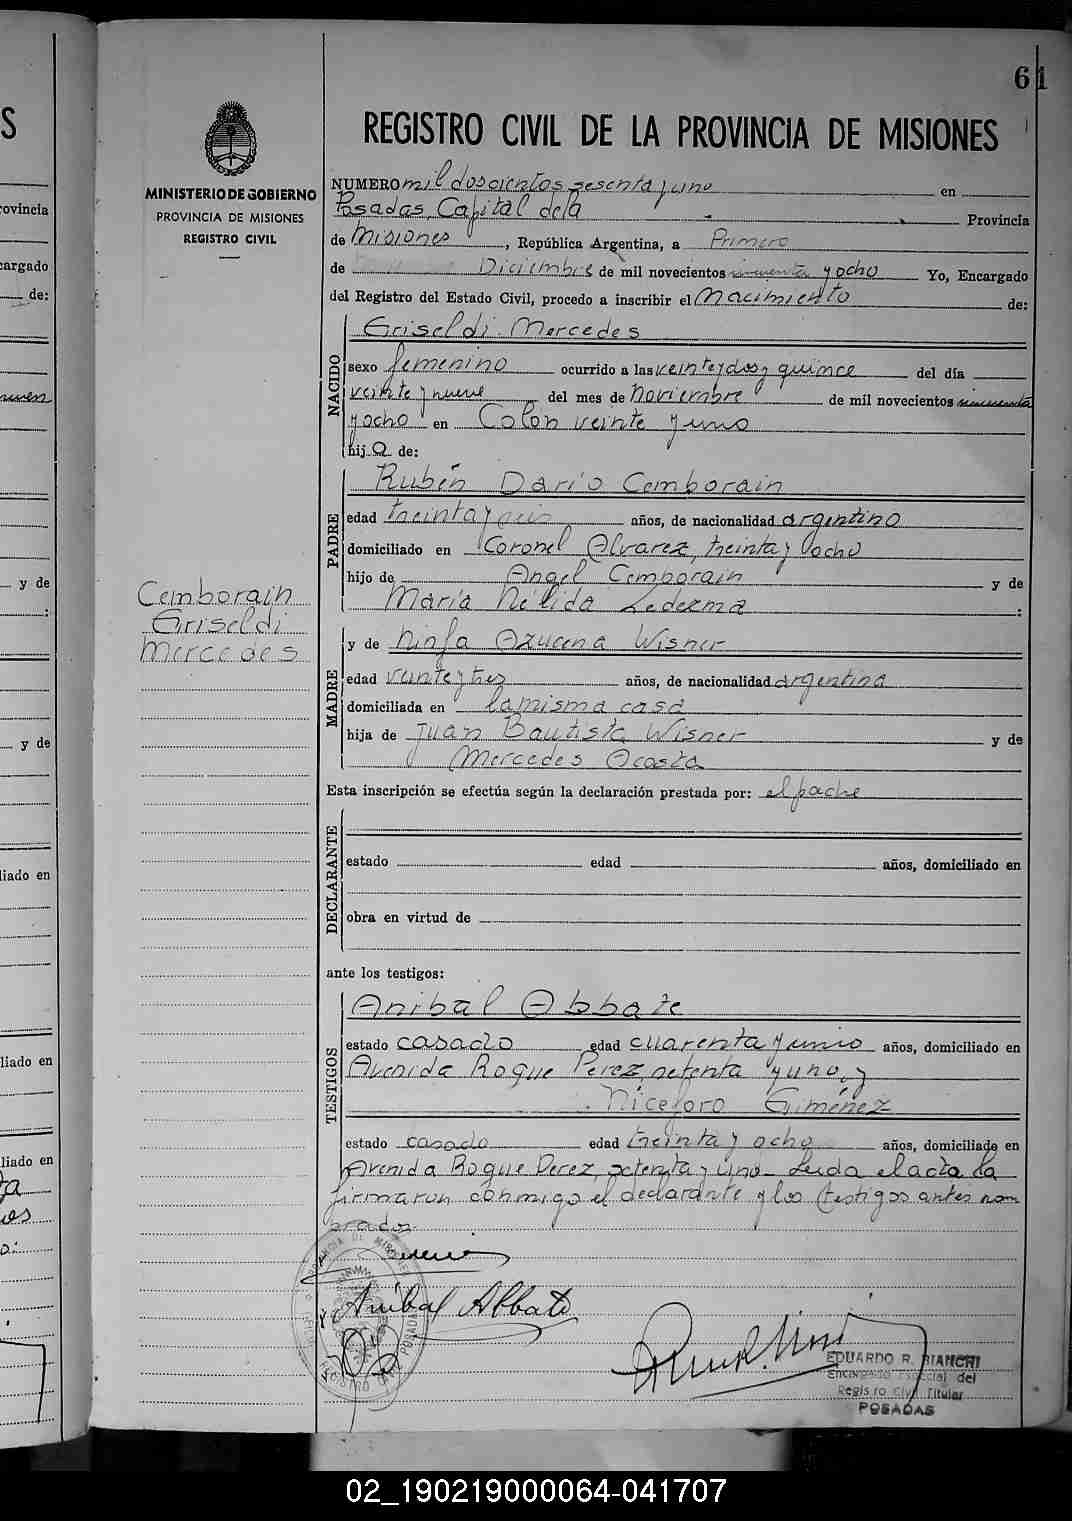 61
REGISTRO CIVIL DE LA PROVINCIA DE MISIONES
MINISTERIO DE GOBIERNO
PROVINCIA DE MISIONES
REGISTRO CIVIL
NUMERO mil doscientos sesenta y uno en
Posadas, Capital dela Provincia
de Misiones, República Argentina, a Primero
de Diciembre de mil novecientos cincuenta y ocho Yo, Encargado
del Registro del Estado Civil, procedo a inscribir el Nacimiento de:
NACIDO
Griseldi Mercedes
sexo femenino ocurrido a las veinte y dos y quince del día
veinte y nueve del mes de noviembre de mil novecientos cincuenta
y ocho en Colón veinte y uno
hij a de:
PADRE
Rubén Darío Cemborain
edad treinta y seis años, de nacionalidad argentino
domiciliado en Coronel Alvarez, treinta y ocho
hijo de Angel Cemborain y de
María Nélida Ledezma :
Cemborain
Griseldi
Mercedes
MADRE
y de Ninfa Azucena Wisner
edad veinte y tres años, de nacionalidad argentina
domiciliada en la misma casa
hija de Juan Bautista Wisner y de
Mercedes Acosta
Esta inscripción se efectúa según la declaración prestada por: el padre
DECLARANTE
estado edad años, domiciliado en
obra en virtud de
ante los testigos:
TESTIGOS
Anibal Abbate
estado casado edad cuarenta y unio años, domiciliado en
Avenida Roque Perez, setenta y uno, y
Niceforo Giménez
estado casado edad treinta y ocho años, domiciliado en
Avenida Roque Perez, setenta y uno. Leida el acta la
firmaron conmigo el declarante y los testigos antes nom
brados
Anibal Abbate
EDUARDO R. BIANCHI
Encargado Especial del
Registro Civil Titular
POSADAS
S
rovincia
cargado
de:
y de
:
y de
liado en
liado en
liado en
02_190219000064-041707